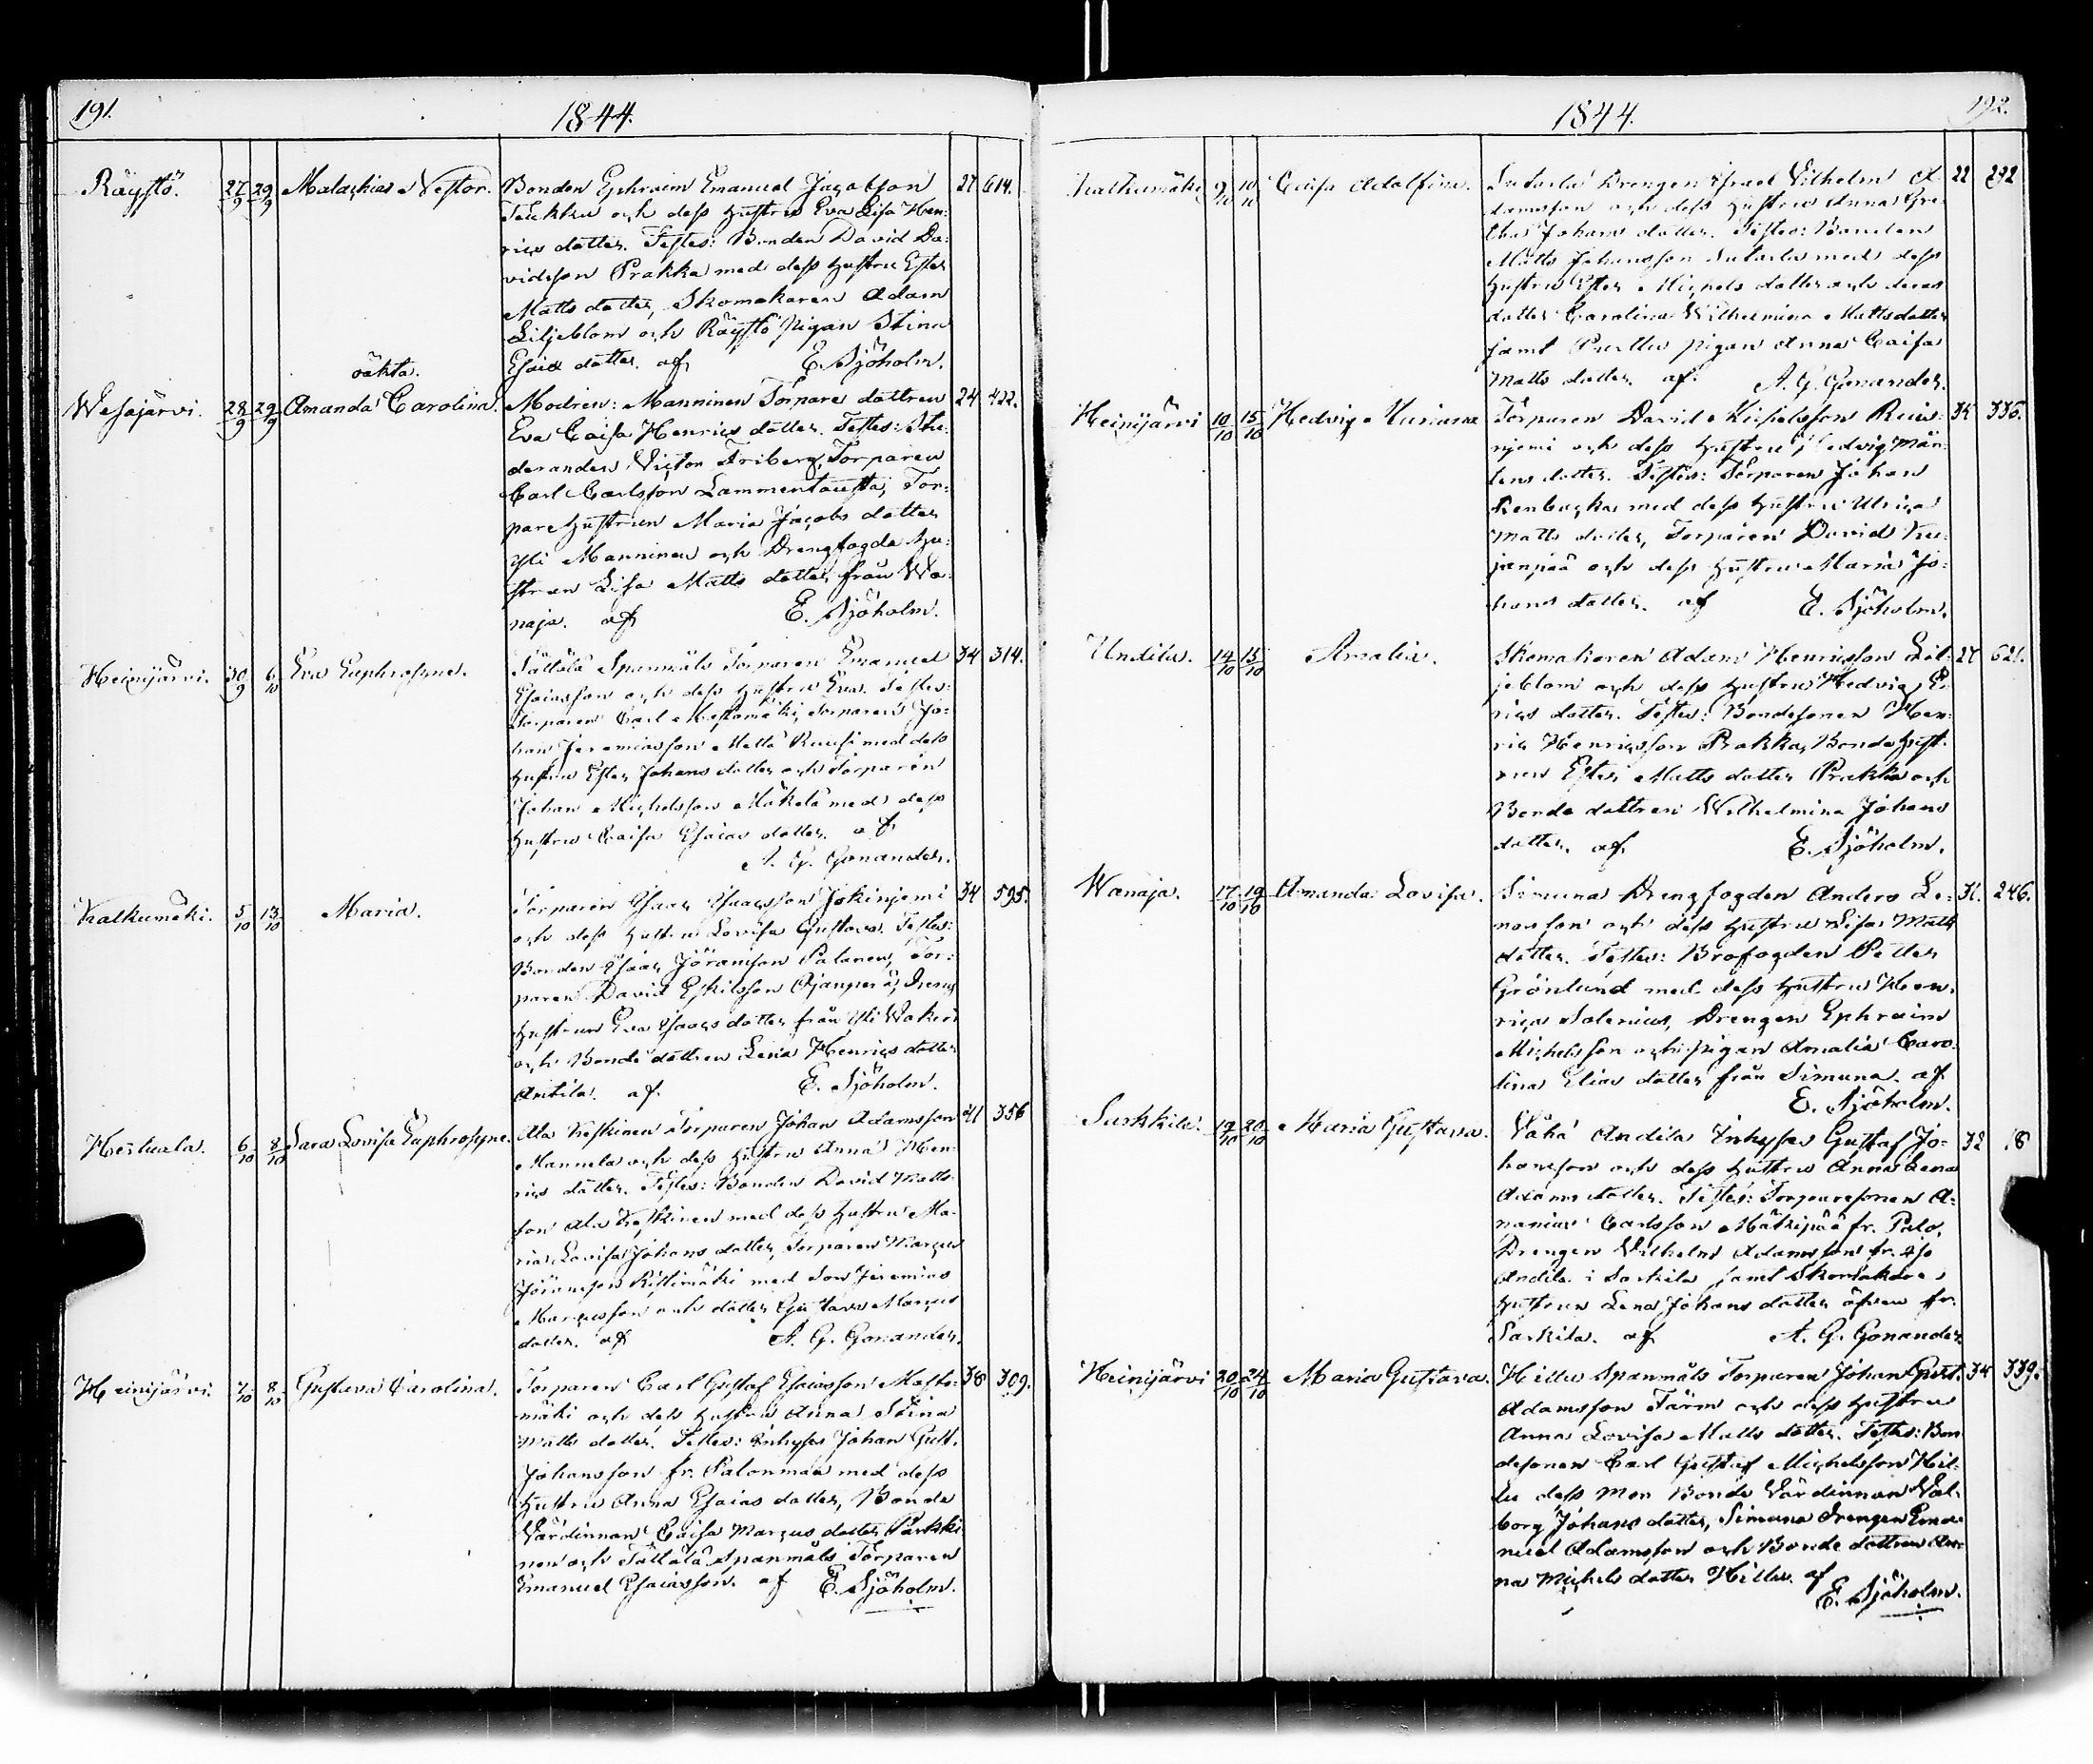 191.
1844.
Räystö. 27/9 29/9 Malachias Nestor. Bonden Ephraim Emanuel Jacobsson 27 614.
Teukku och dess hustru Eva Lisa Hen-
rics dotter. Testes: Bonden David Da-
vidsson Prakka med dess hustru Ester
Matts dotter, Skomakaren Adam
Liljeblom och Räystö pigan Stina
Esaiæ dotter. af E. Sjöholm.
oäkta.
Wesajärvi. 28/9 29/9 Amanda Carolina. Modren: Manninen Torpare dottren 24 422.
Eva Caisa Henrics dotter. Testes: Stu-
deranden Victor Friberg, Torparen
Carl Carlsson Lammentausta, Tor-
pare hustrun Maria Jacobs dotter
Yli Manninen och Drengfogde hu-
strun Lisa Matts dotter från Wa-
naja. af E. Sjöholm.
Heinijärvi. 30/9 6/10 Eva Euphrosyne. Tättälä Spanmåls Torparen Emanuel 34 314.
Esaiasson och dess hustru Eva. Testes:
Torparen Carl Mestomäki, Torparen Jo-
han Jeremiasson Mella Ruusi med dess
hustru Ester Johans dotter och Torparen
Johan Michelsson Mäkelä med dess
hustru Caisa Esaias dotter. af
A. G. Gonander.
Kalkumäki. 5/10 13/10 Maria. Torparen Isaac Isaacsson Jokinjemi 34 595.
och dess hustru Lovisa Gustava. Testes:
Bonden Isaac Jöransson Palanen, Tor-
paren David Eskilsson Ojanperä, Dreng
hustrun Eva Isaacs dotter från Yli Wakeri
och Bonde dottren Lena Henrics dotter
Antila. af E. Sjöholm.
Hertuala. 6/10 8/10 Sara Lovisa Euphrosyne. Ala Keskinen Torparen Johan Adamsson 41 356
Mannela och dess hustru Anna Hen-
rics dotter. Testes: Bonden David Matts-
son Ala Keskinen med dess hustru Ma-
ria Lovisa Johans dotter, Torparen Marcus
Jöransson Ristimäki med Son Jeremias
Marcusson och dotter Gustava Marcus
dotter. af A. G. Gonander.
Heinijärvi. 7/10 8/10 Gustava Carolina. Torparen Carl Gustaf Esaiasson Masto- 38 309.
mäki och dess hustru Anna Stina
Matts dotter. Testes: Inhyses Johan Gust.
Johansson fr. Palonmaa med dess
hustru Anna Esaias dotter, Bonde
Värdinnan Caisa Marcus dotter Parkki-
nen och Tättälä Spanmåls Torparen
Emanuel Esaiasson. af E. Sjöholm.
192.
1844.
Kalkumäki 9/10 10/10 Caisa Adolfina. Drengen Israel Vilhelm A- 22 292
damsson och dess hustru Anna Gre-
tha Johans dotter. Testes: Bonden
Matts Johansson med dess
hustru Ester Michels dotter och deras
dotter Carolina Wilhelmina Mattsdotter
samt pigan Anna Caisa
Matts dotter. af A. G. Gonander.
Heinijärvi 10/10 15/10 Hedvig Mariana Torparen David Michelsson Reini- 34 336.
njemi och dess hustru Hedvig Mår-
tens dotter. Testes: Torparen Johan
Renbacka med dess hustru Ulrica
Matts dotter, Torparen David Ku-
janpää och dess hustru Maria Jo-
hans dotter. af E. Sjöholm.
Undila. 14/10 15/10 Amalia. Skomakaren Adam Henricsson Lil- 27 621.
jeblom och dess hustru Hedvig Er-
ics dotter. Testes: Bondesonen Hen-
ric Henricsson Prakka, Bonde hust-
run Ester Matts dotter Prakka och
Bonde dottren Wilhelmina Johans
dotter. af E. Sjöholm.
Wanaja. 17/10 19/10 Amanda Lovisa. Simuna Drengfogden Anders Le- 31. 246.
nosson och dess hustru Lisa Matts
dotter. Testes: Brofogden Petter
Grönlund med dess hustru Hen-
rica Salenius, Drengen Ephraim
Michelsson och pigan Amalia Caro-
lina Elias dotter från Simuna. af
E. Sjöholm.
Sarkkila. 19/10 20/10 Maria Gustava. Vähä Andila Inhyses Gustaf Jo- 32 18
hansson och dess hustru Anna Lena
Adams dotter. Testes: Torparesonen A-
nanias Carlsson Mäkipää fr. Palo,
Drengen Vilhelm Adamsson fr. Iso
Andila i Sarkila samt Skomakare
hustrun Lena Johans dotter äfven fr.
Sarkila. af A. G. Gonander.
Heinijärvi 20/10 24/10 Maria Gustava. Hillu Spanmåls Torparen Johan Gust. 34 339.
Adamsson Färm och dess hustru
Anna Lovisa Matts dotter. Testes: Bon-
desonen Carl Gustaf Michelsson Hil-
lu dess Mor Bonde Värdinnan Val-
borg Johans dotter, Simuna Drengen Ema-
nuel Adamsson och Bonde dottren An-
na Michels dotter Hillu. af
E. Sjöholm.